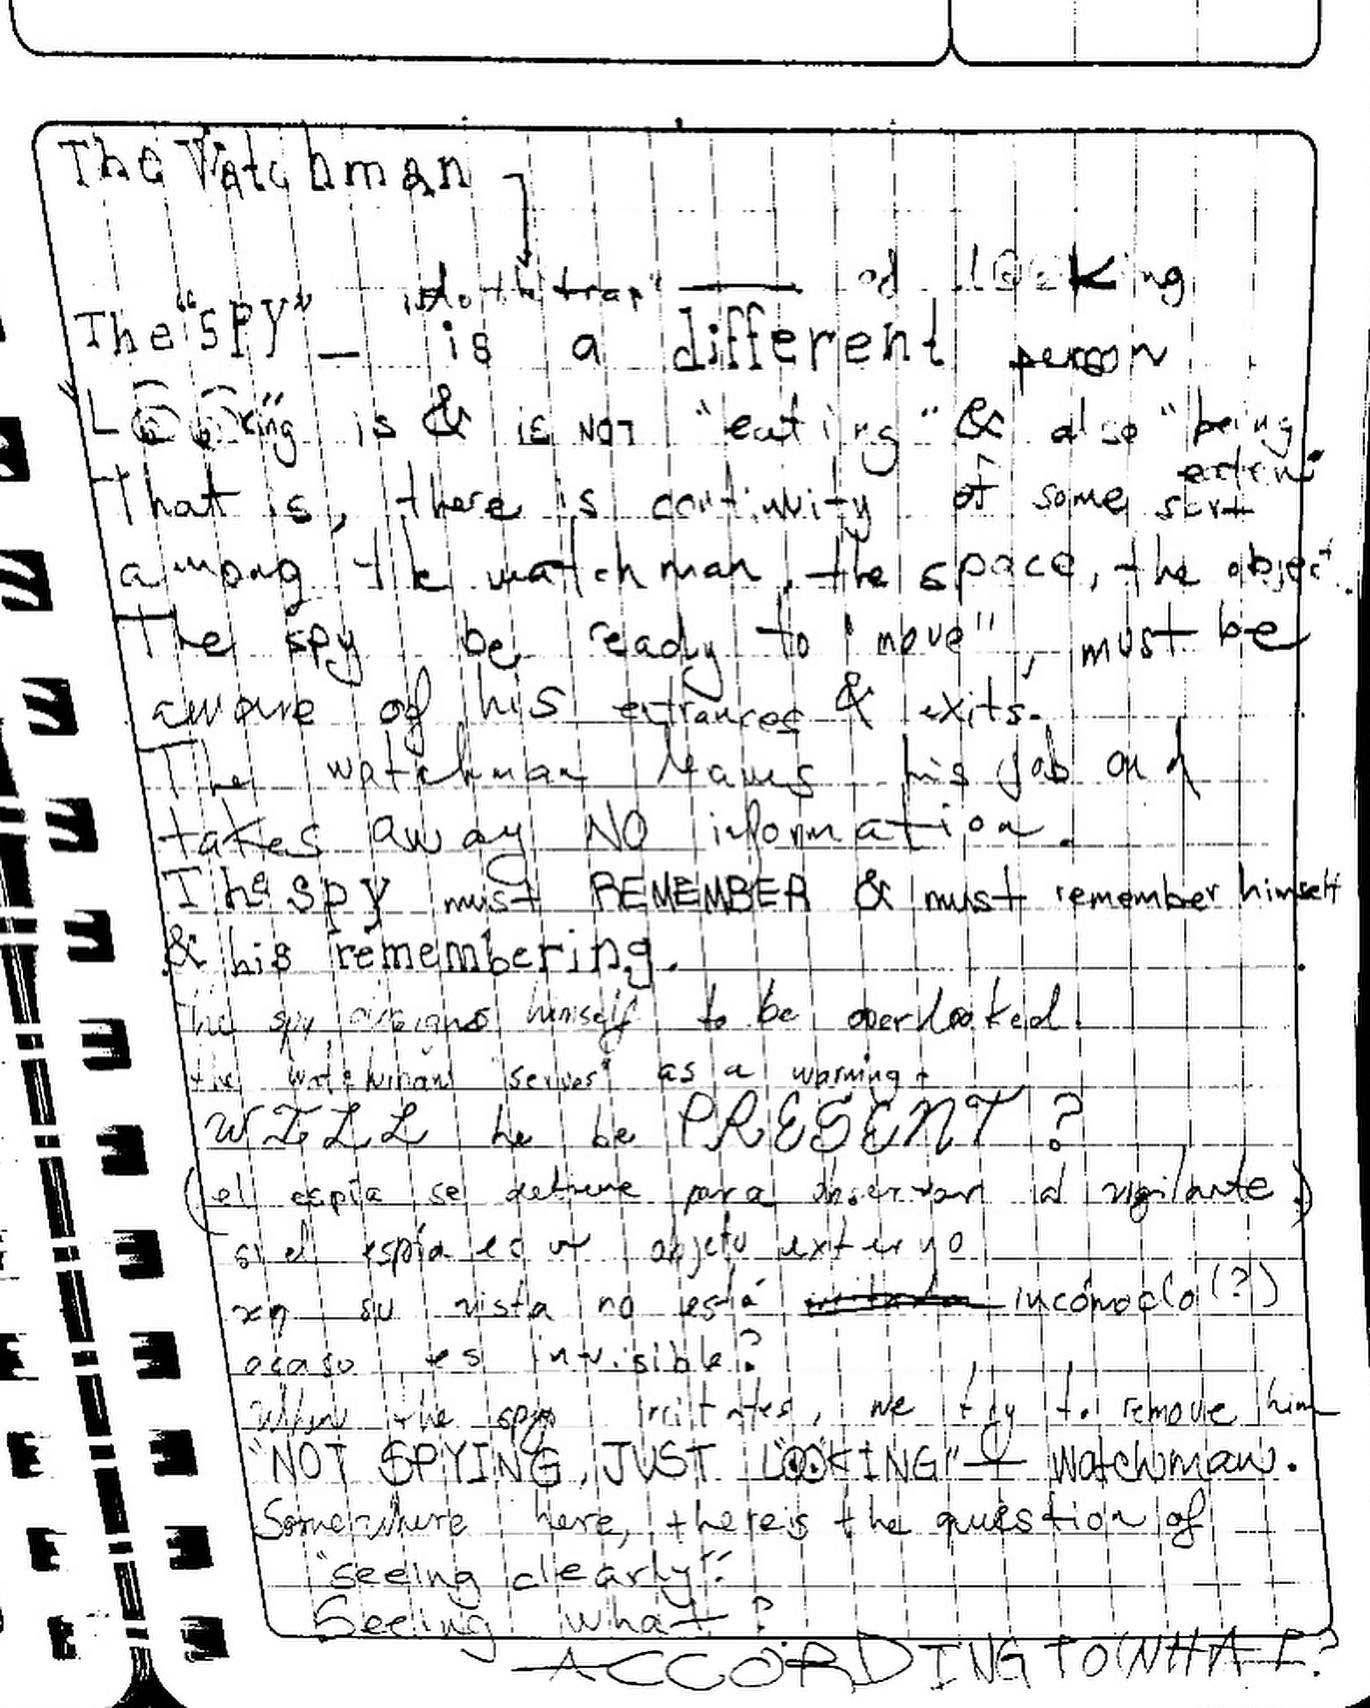 The Watchman
"trap" of looking
The "SPY" — is a different person
Looking is & is NOT "eating" & also "being
eaten"
That is, there is continuity of some sort
among the watchman, the space, the object.
The spy be ready to "move", must be
aware of his entrances & exits.
The watchman leaves his job and
takes away NO information.
The spy must REMEMBER & must remember himself
& his remembering.
The spy designs himself to be overlooked.
the watchman "serves" as a warning.
WILL he be PRESENT?
(el espía se detiene para observar al vigilante)
si el espía es un objeto externo
su vista no está incómodo (?)
acaso es invisible?
When the spy irritates, we try to remove him
"NOT SPYING, JUST LOOKING" – Watchman.
Somewhere here, there is the question of
"seeing clearly".
Seeing what?
ACCORDING TO WHAT?